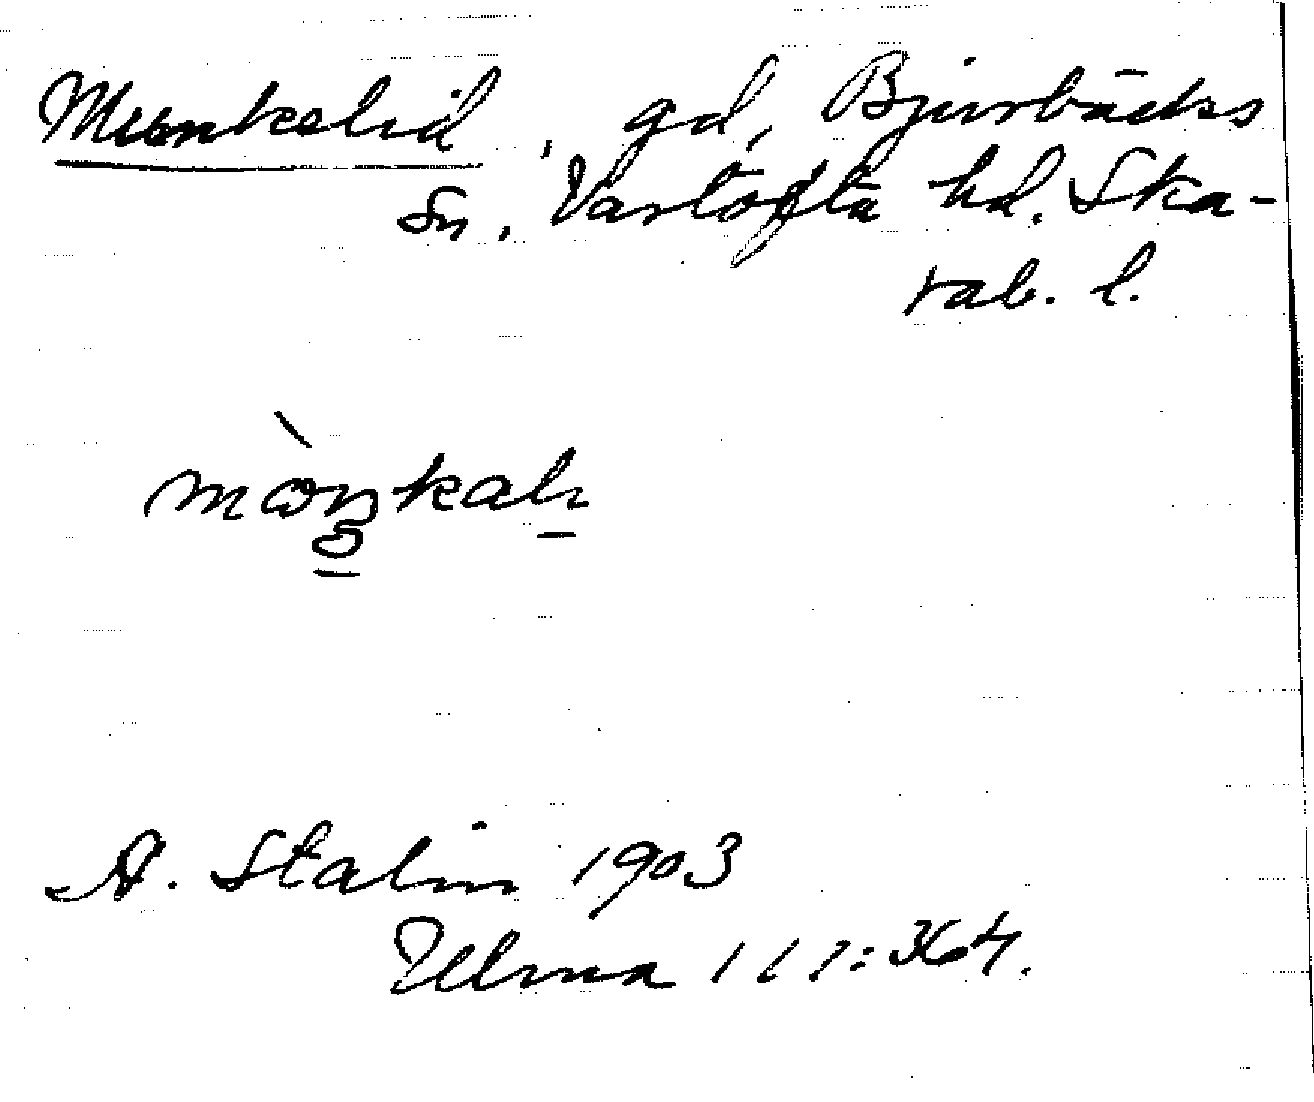 Munkelid, gd, Bjurbäcks
sn, Vartofta hd. Ska-
rab. l.
A. Stalin 1903
Ulma 111:364.